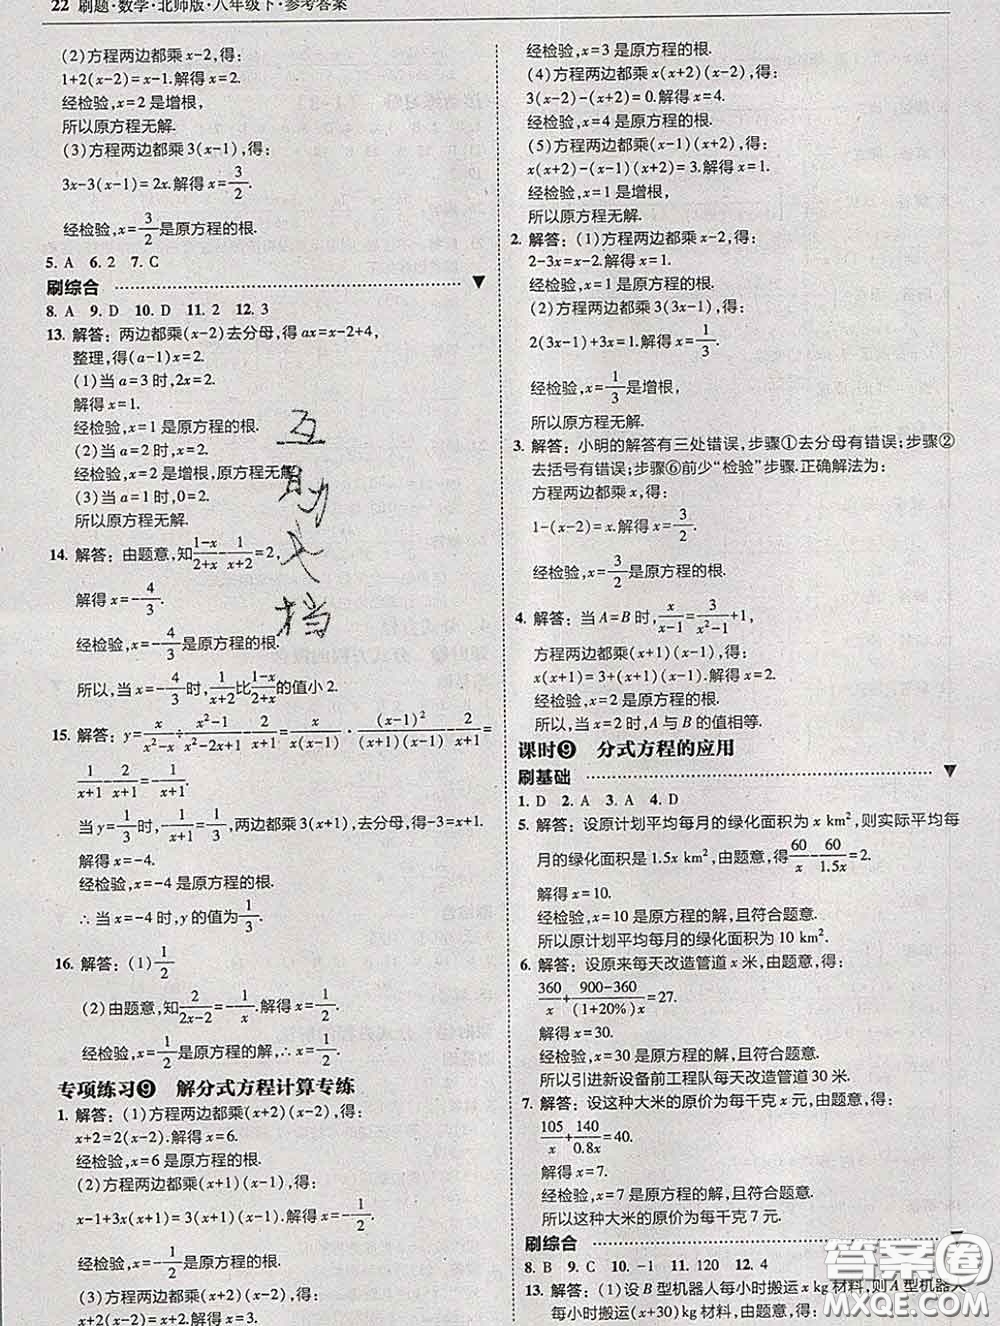 22 刷题·数学·北师版·八年级下·参考答案
(2)方程两边都乘x-2,得:
1+2(x-2)=x-1.解得x=2.
经检验,x=2是增根,
所以原方程无解.
(3)方程两边都乘3(x-1),得:
3x-3(x-1)=2x.解得x=3/2.
经检验,x=3/2是原方程的根.
5. A 6. 2 7. C
刷综合
8. A 9. D 10. D 11. 2 12. 3
13. 解答:两边都乘(x-2)去分母,得ax=x-2+4,
整理,得(a-1)x=2.
(1)当a=3时,2x=2.
解得x=1.
经检验,x=1是原方程的根.
(2)当a=2时,x=2.
经检验x=2是增根,原方程无解.
(3)当a=1时,0=2.
所以原方程无解.
14. 解答:由题意,知(1-x)/(2+x)-1/(x+2)=2,
解得x=-4/3.
经检验,x=-4/3是原方程的根.
所以,当x=-4/3时,1/(x+2)比(1-x)/(2+x)的值小2.
15. 解答:y=x/(x²-x)÷(x²-1)/(x²-2x+1)-2/(x+1)=x/(x(x-1))·(x-1)²/((x+1)(x-1))-2/(x+1)=
1/(x+1)-2/(x+1)=-1/(x+1).
当y=1/3时,-1/(x+1)=1/3,两边都乘3(x+1),去分母,得-3=x+1.
解得x=-4.
经检验,x=-4是原方程的根.
∴当x=-4时,y的值为1/3.
16. 解答:(1)1/2
(2)由题意,知2/(2x-2)=-1/x.解得x=1/2.
经检验,x=1/2是原方程的解,∴x=1/2.
专项练习9 解分式方程计算专练
1. 解答:(1)方程两边都乘(x+2)(x-2),得:
x+2=2(x-2).解得x=6.
经检验,x=6是原方程的根.
(2)方程两边都乘(x+1)(x-1),得:
x-1+3x(x+1)=3(x+1)(x-1).解得x=-1/2.
经检验,x=-1/2是原方程的根.
(3)方程两边都乘(x+1)(x-1),得:
2(x+1)=4.解得x=1.
经检验,x=3是原方程的根.
(4)方程两边都乘x(x+2)(x-2),得:
3(x-2)-(x+2)=0.解得x=4.
经检验,x=4是原方程的根.
(5)方程两边都乘(x-1)(x+2),得:
x(x+2)-(x-1)(x+2)=3.解得x=1.
经检验,x=1是增根,
所以原方程无解.
2. 解答:(1)方程两边都乘x-2,得:
2-3x=x-2.解得x=1.
经检验,x=1是原方程的根.
(2)方程两边都乘3(3x-1),得:
2(3x-1)+3x=1.解得x=1/3.
经检验,x=1/3是增根,
所以原方程无解.
3. 解答:小明的解答有三处错误,步骤①去分母有错误;步骤②
去括号有错误;步骤⑥前少“检验”步骤.正确解法为:
方程两边都乘x,得:
1-(x-2)=x.解得x=3/2.
经检验,x=3/2是原方程的根.
4. 解答:当A=B时,x/(x-1)=3/(x²-1)+1,
方程两边都乘(x+1)(x-1),得:
x(x+1)=3+(x+1)(x-1).解得x=2.
经检验,x=2是原方程的根.
所以,当x=2时,A与B的值相等.
课时9 分式方程的应用
刷基础
1. D 2. A 3. A 4. D
5. 解答:设原计划平均每月的绿化面积为x km²,则实际平均每
月的绿化面积是1.5x km²,由题意,得60/x-60/1.5x=2.
解得x=10.
经检验,x=10是原方程的解,且符合题意.
所以原计划平均每月的绿化面积为10 km².
6. 解答:设原来每天改造管道x米,由题意,得:
360/x+(900-360)/((1+20%)x)=27.
解得x=30.
经检验,x=30是原方程的解,且符合题意.
所以引进新设备前工程队每天改造管道30米.
7. 解答:设这种大米的原价为每千克x元,由题意,得:
105/x+140/0.8x=40.
解得x=7.
经检验,x=7是原方程的解,且符合题意.
所以这种大米的原价为每千克7元.
刷综合
8. B 9. C 10. -1 11. 120 12. 4
13. 解答:(1)设B型机器人每小时搬运x kg材料,则A型机器人
每小时搬运(x+30)kg材料,由题意,得:
答案圈
MXQE.COM